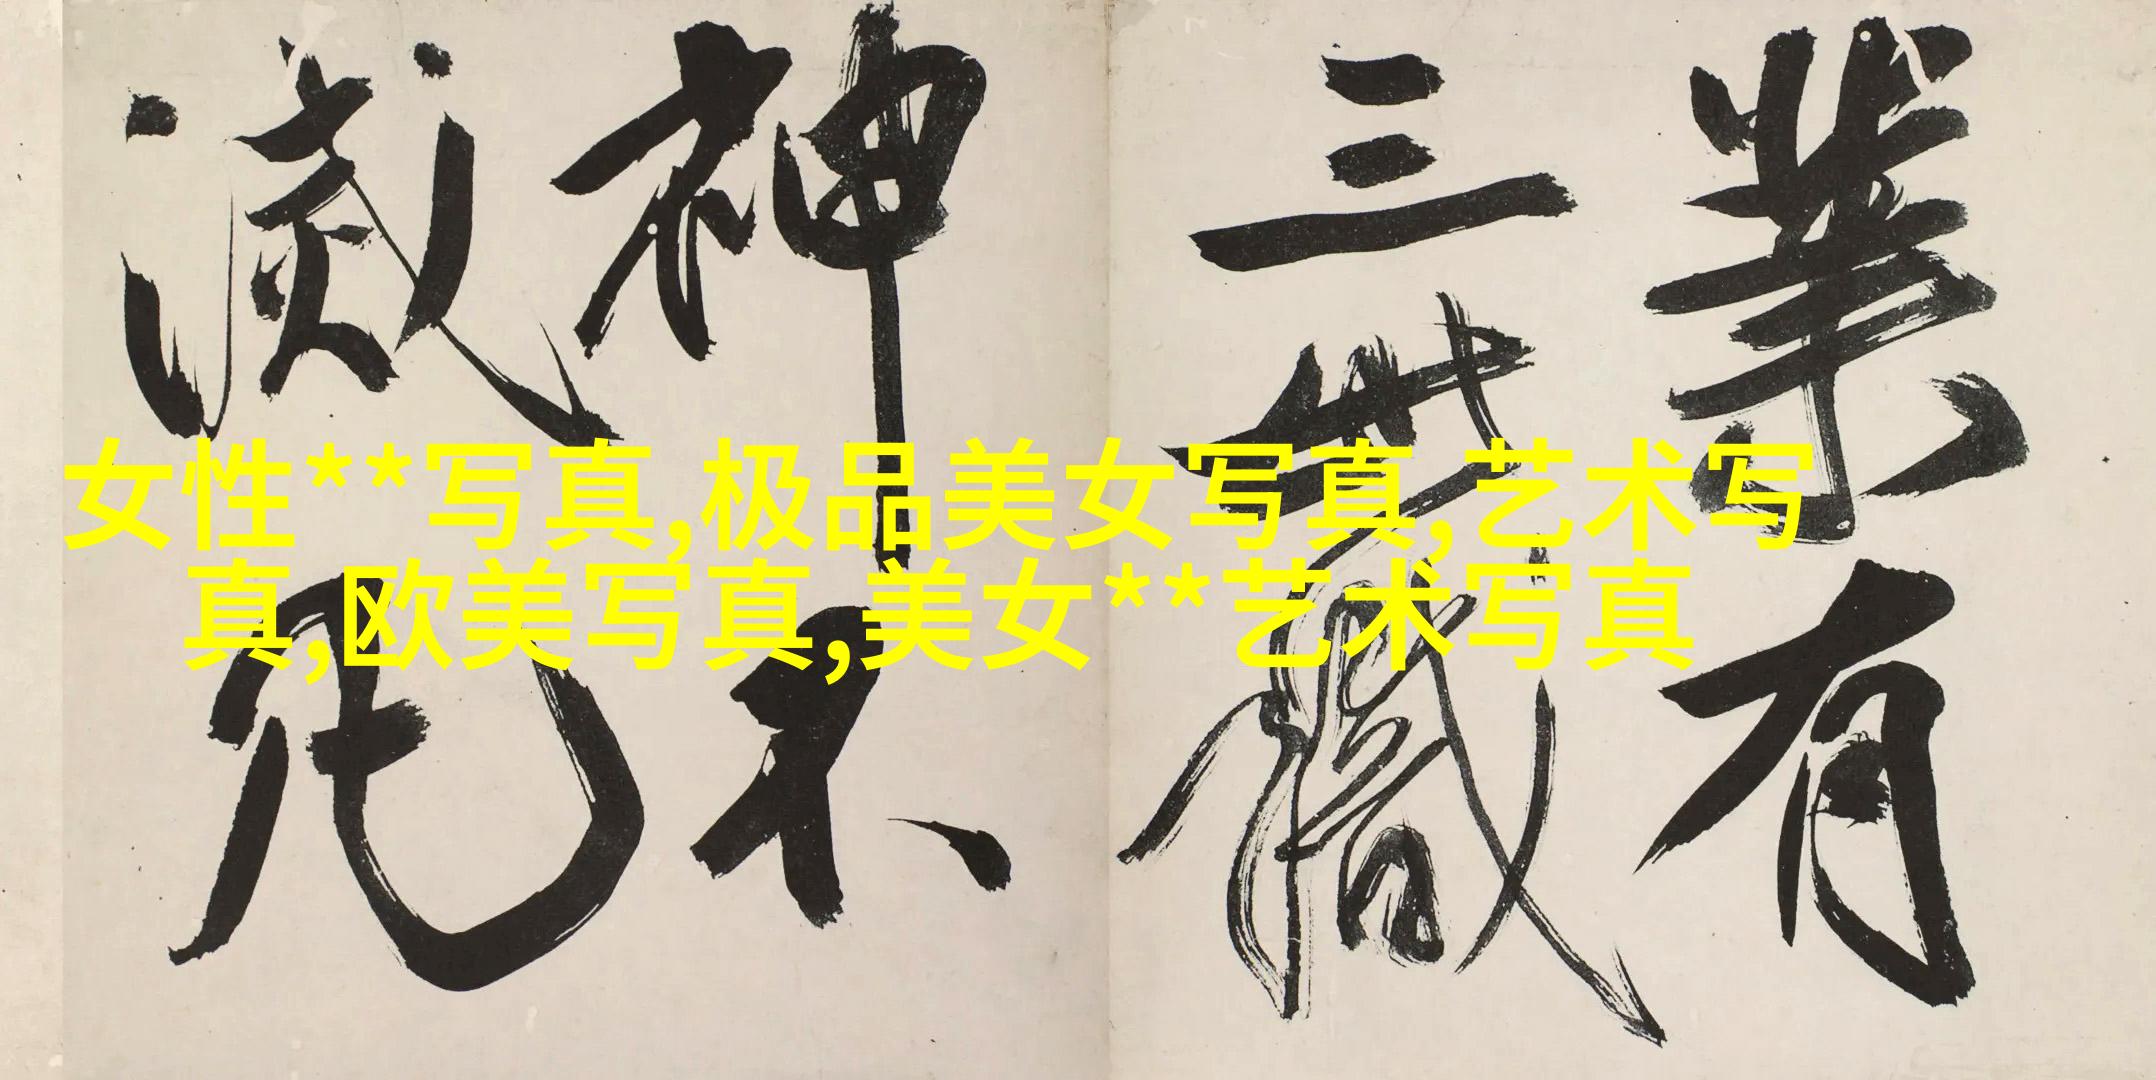 業有
三世識
神不
滅凡
女性**写真,极品美女写真,艺术写
真,欧美写真,美女**艺术写真